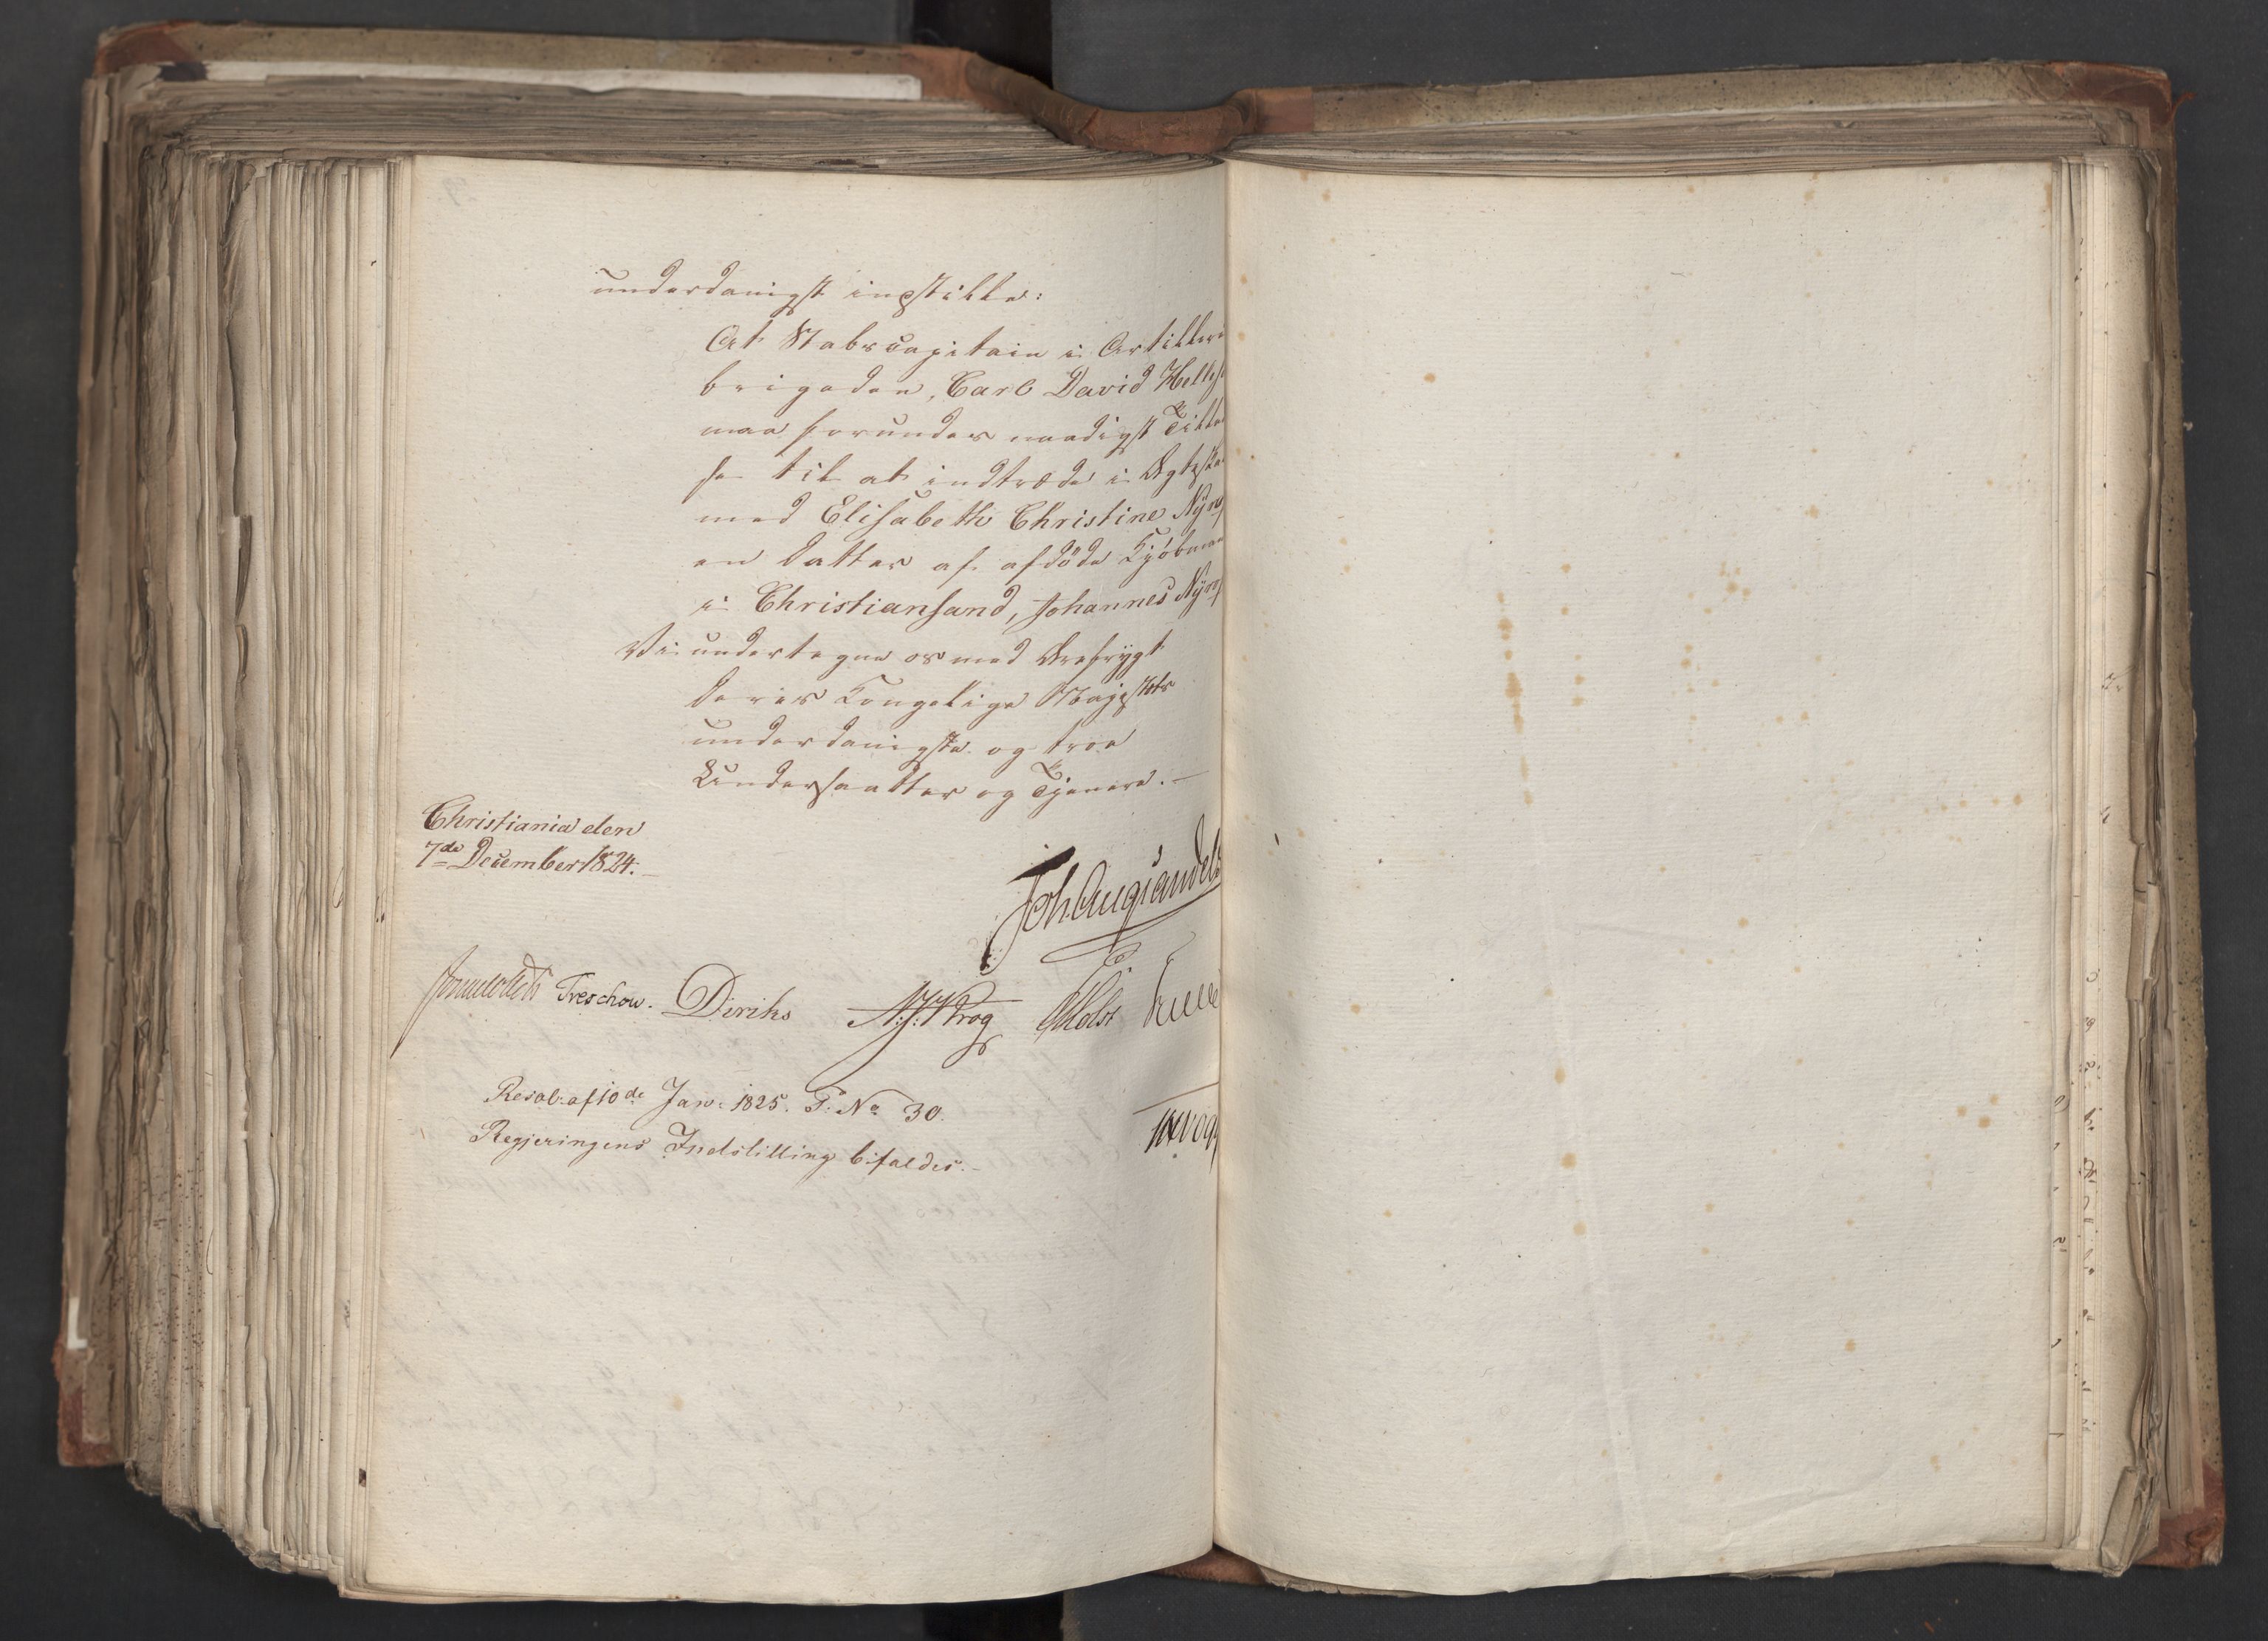 underdanigst indstille:
At Stabscapitain i Artilleri
brigaden, Carl David Helles
maa forundes naadigst Tilla
se til at indtræde i Ægteska
med Elisabeth Christine
en Datter af afdøde Kjöbman
i Christiansand, Johannes
Vi undertegne os med Ærefrygt
Deres Kongelige Majestæts
underdanigste og troe
Undersaatter og Tjenere. —
Christiania den
7de December 1824. —
Joh Aug Sandels
Sommerhielm Treschow. Diriks N: J: Krog PHolst
Resol: af 10de Jan: 1825. P: No 30.
Regjeringens Indstilling bifaldes. —